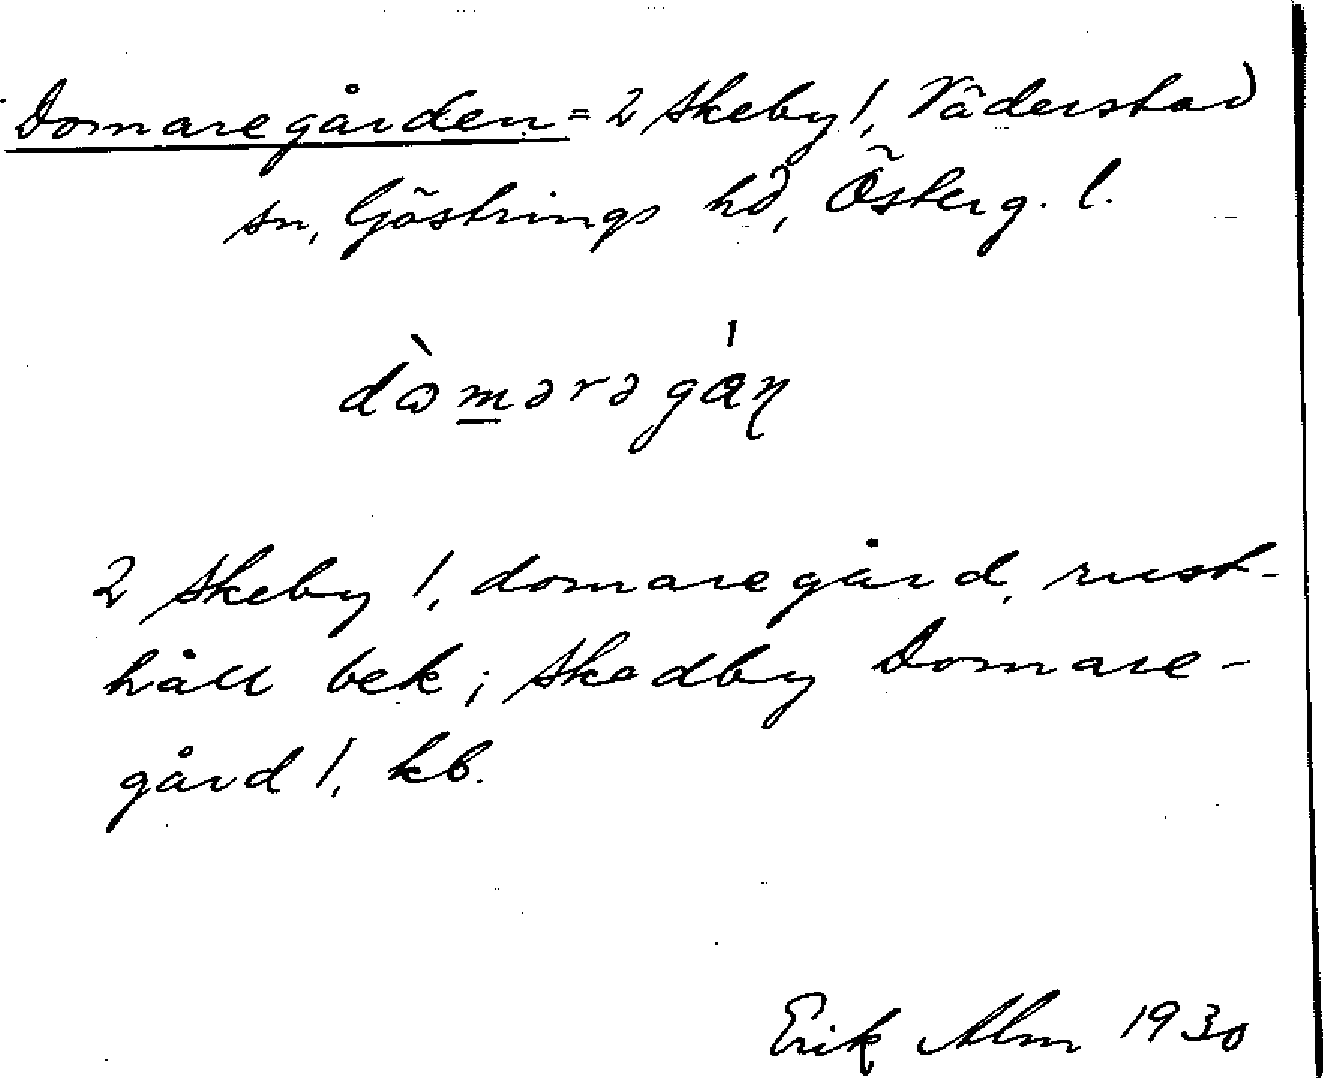 Domaregården = 2 Skeby 1, Väderstad
sn, Göstrings hd, Österg. l.
dò̀mərəgán
2 Skeby 1, domaregård, rust-
håll bek; Skedby Domare-
gård 1, kb.
Erik Alm 1930